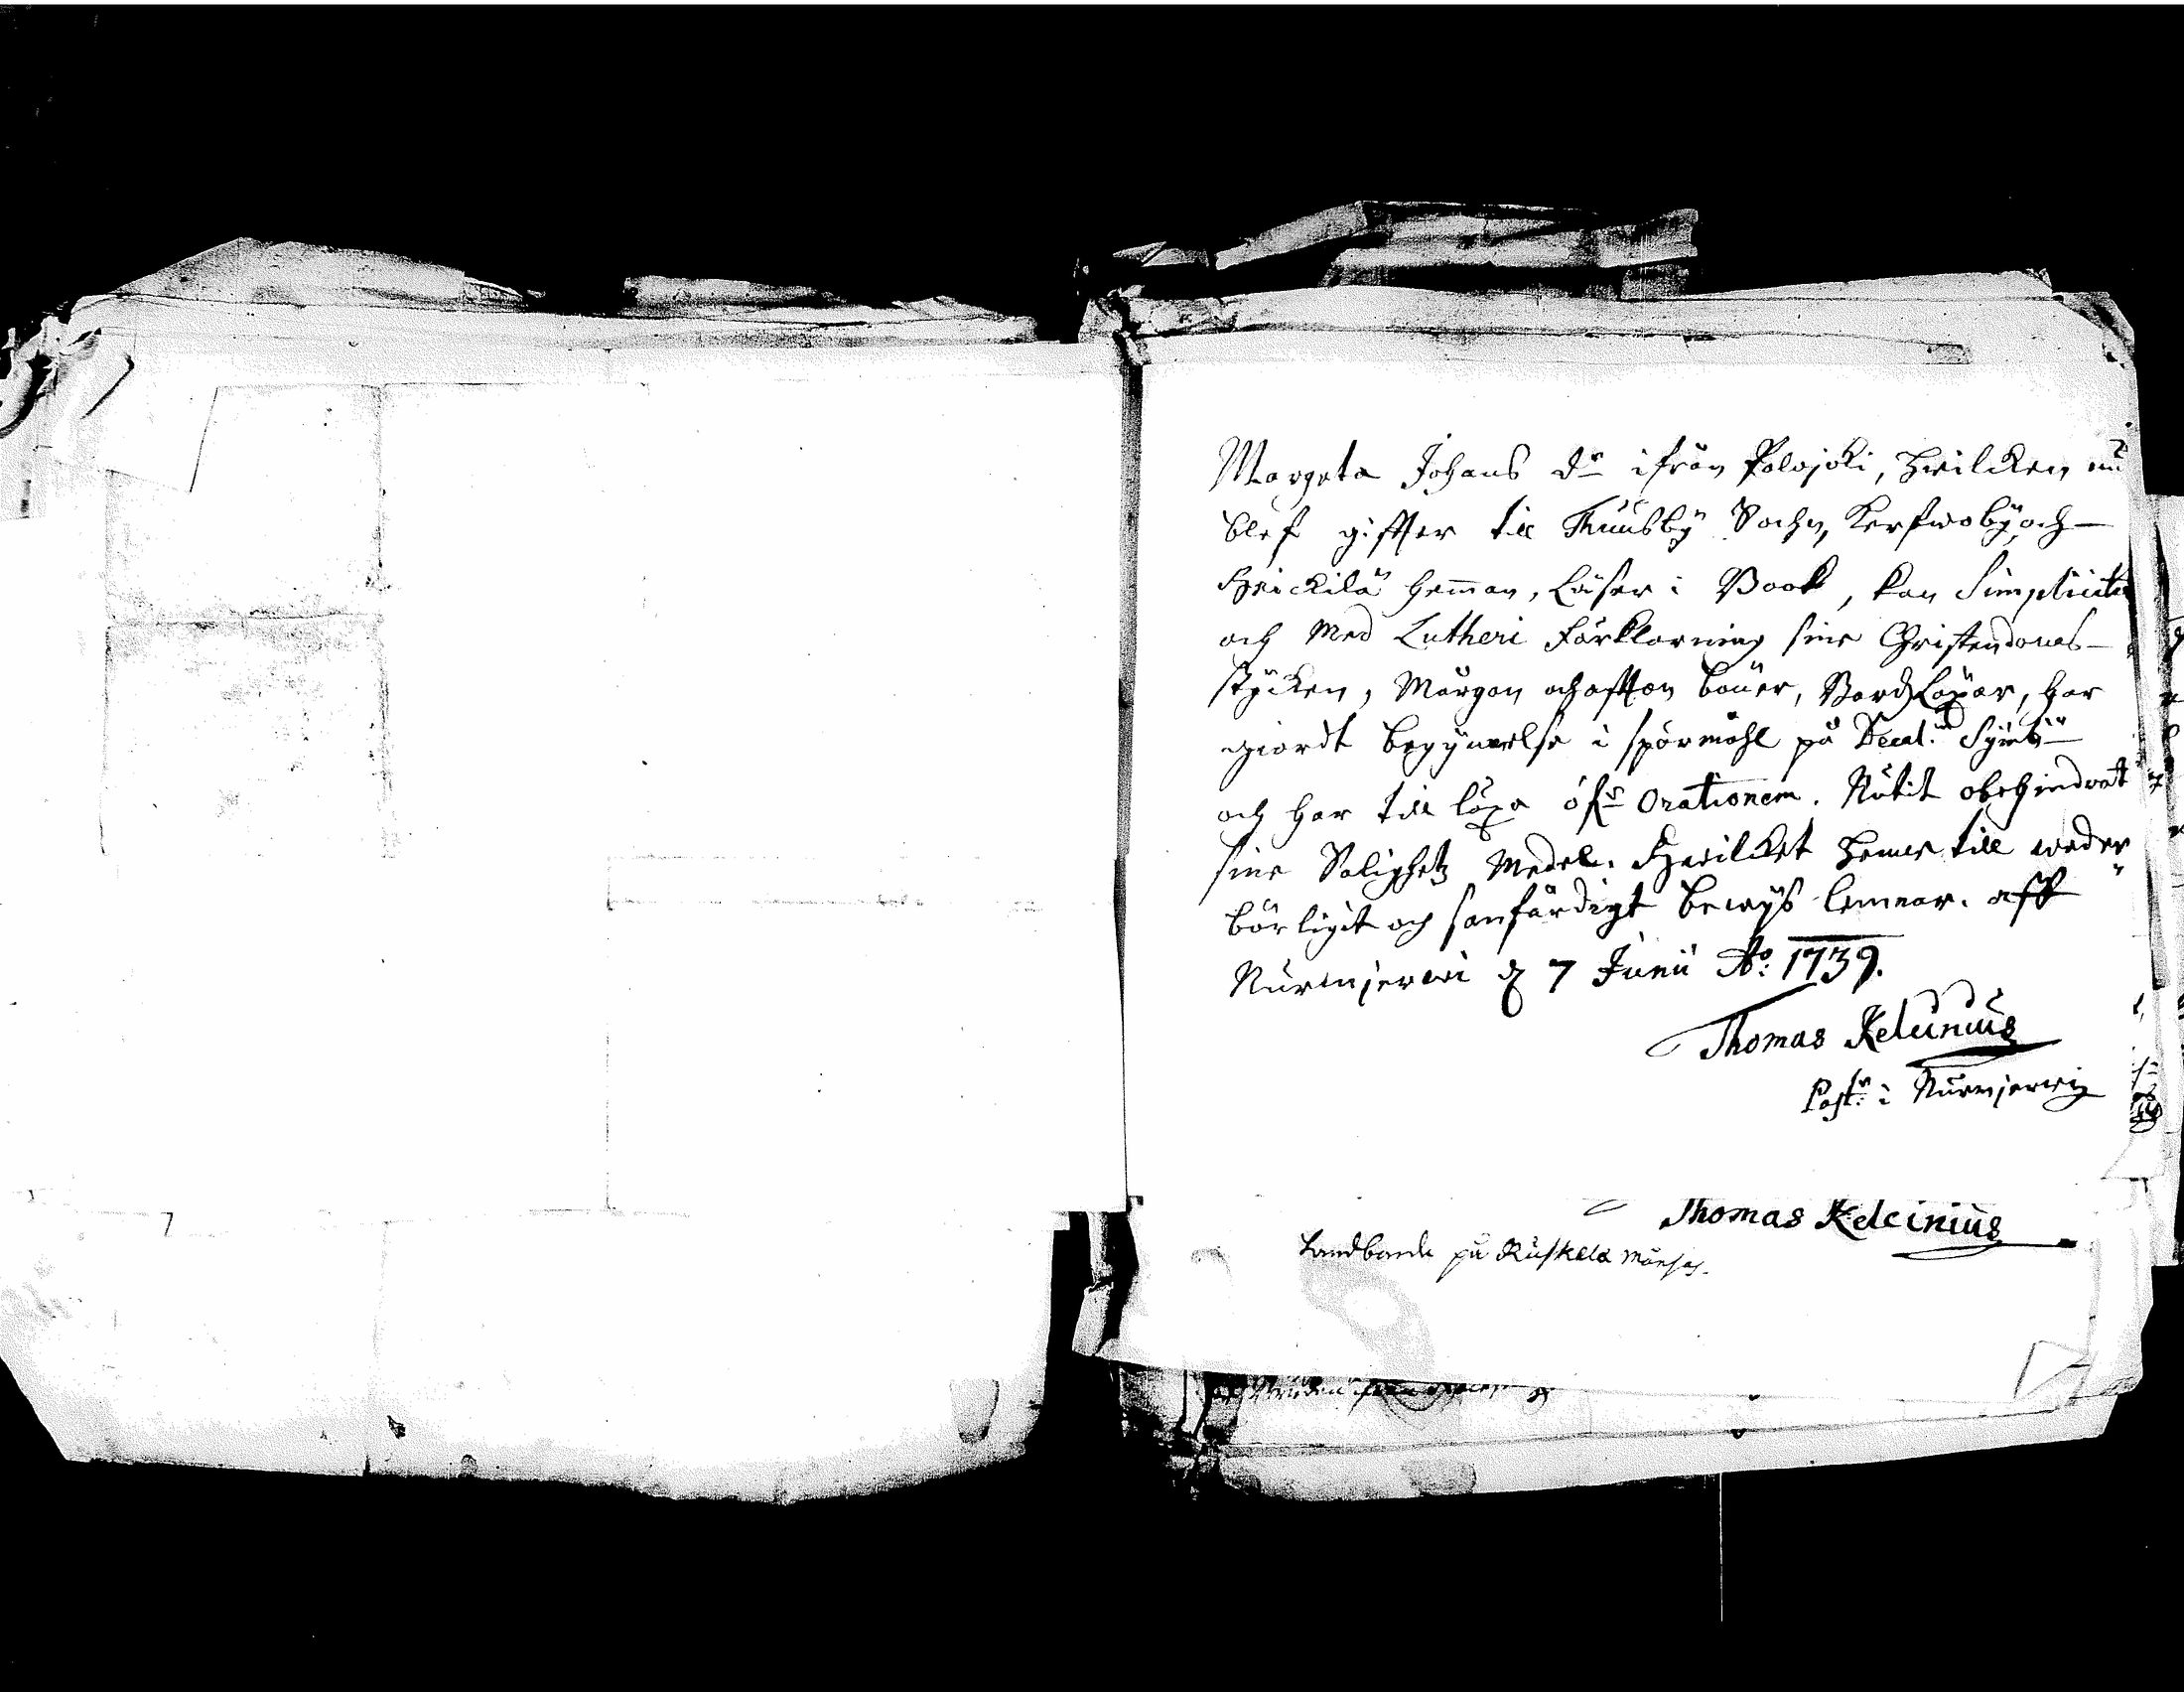 Margeta Johans dr ifrån Palojoki, hwilcken nu
blef giffter till Thuusby Sochn, Kerfwoby och
Heickilä hemman, Läser i Book, kan Simpliciter
och Med Lutheri Förklarning sine Christendoms
stycken, Mårgon och affton böner, Bordz Läxor, har
giordt begynnelse i spörmåhl på Decal.
och har till läxa Orationem. Nütit obehindrat
sine Salighetz Medel. Hwilcket henne till weder
börligit och sanfärdigt bewys lemnar. aff
Nurmjerwi d 7 Junii Ao: 1739.
Thomas Keleinius
Past: i Nurmjerwi
Thomas Keleinius
Landbonde på Ruskela
7